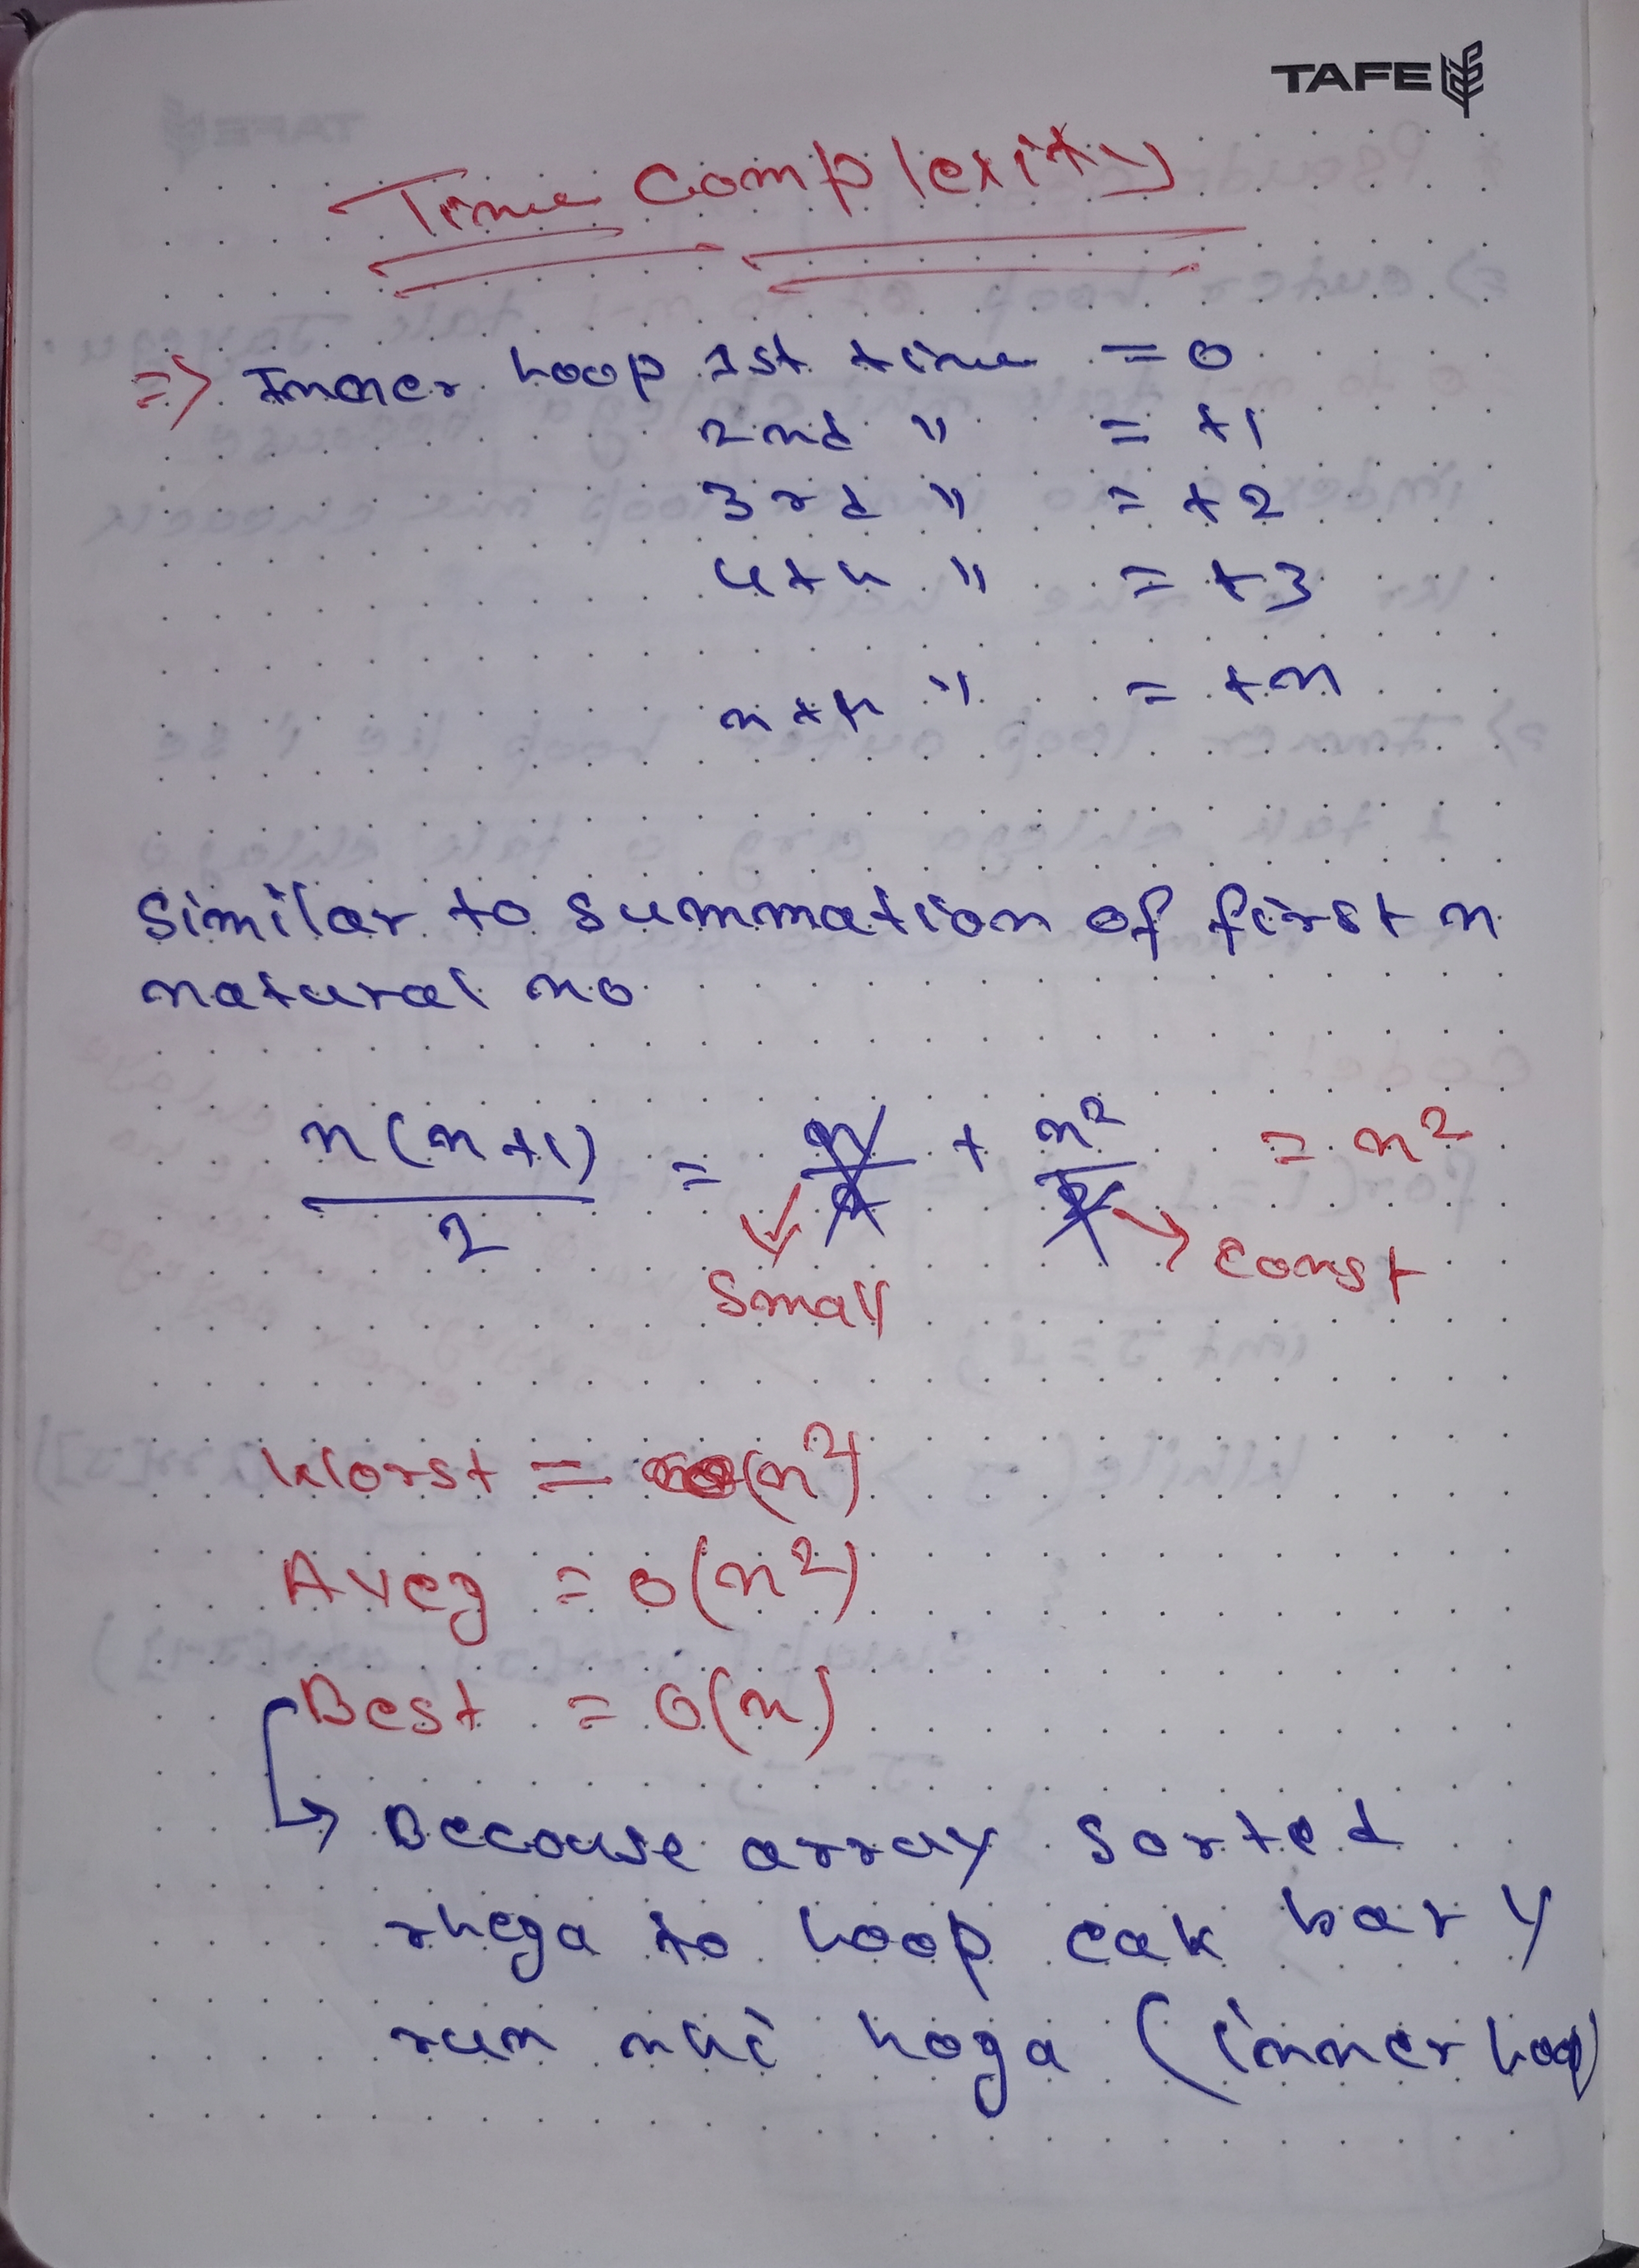 TAFE
Time Complexity
=> Inner Loop 1st time = 0
2nd " = +1
3rd " = +2
4th " = +3
nth " = +n
Similar to summation of first n
natural no
n(n+1)/2 = n/2 + n²/2 = n²
Small
Const
Worst = O(n²)
Aveg = O(n²)
Best = O(n)
→ Becouse array sorted
rhega to Loop eak bar y
run nhi hoga (inner Loop)